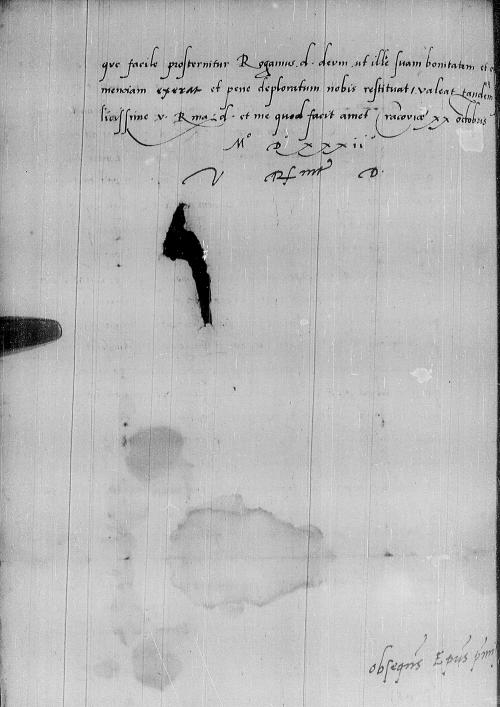 que facile prosternitur Rogamus d. deum ut ille suam bonitatem et
menciam exerat et pene deploratum nobis restituat, valeat tandem
licissime v. Rma d. et me quod facit amet Cracovie xx octobris
Mo D. xxxii
V Rme D.
obsequens Epus